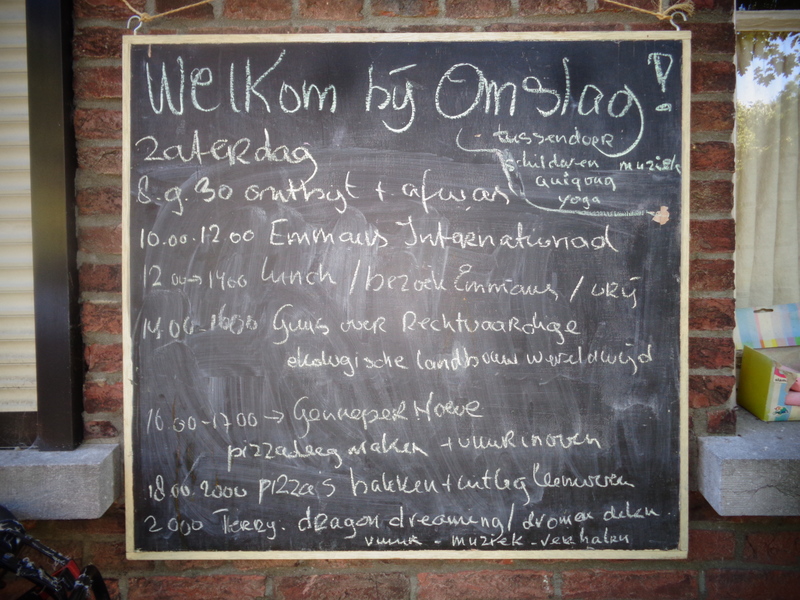 Welkom bij Omslag!
tussendoor
schilderen muziek
quigong
yoga
Zaterdag
8.9.30 ontbijt + afwas
10.00.12.00 Emmaus Internationaal
12.00→1400 lunch / bezoek Emmaus / vrij
14.00-1600 Guus over Rechtvaardige
ekologische landbouw wereldwijd
16.00-1700 → Genneper Hoeve
pizzadeeg maken + vuur in oven
18.00.2000 pizza's bakken + uitleg leemoven
2000 Terry. dragon dreaming / dromen delen
vuur - muziek - verhalen